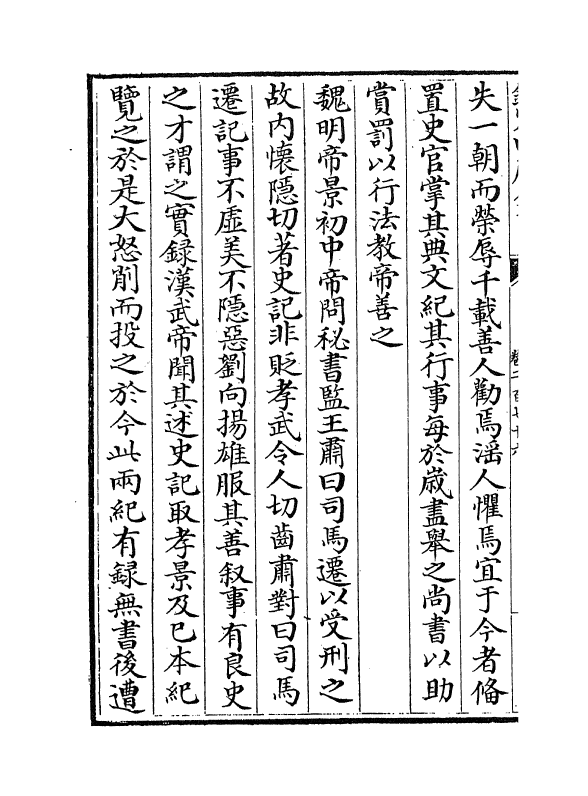 失一朝而榮辱千載善人勸焉淫人懼焉宜于今者偹
置史官掌其典文紀其行事每於歳盡舉之尚書以助
賞罰以行法教帝善之
魏明帝景初中帝問秘書監王肅曰司馬遷以受刑之
故内懷隱切著史記非貶孝武令人切齒肅對曰司馬
遷記事不虚美不隱惡劉向揚雄服其善叙事有良史
之才謂之實録漢武帝聞其述史記取孝景及已本紀
覽之於是大怒削而投之於今此兩紀有録無書後遭